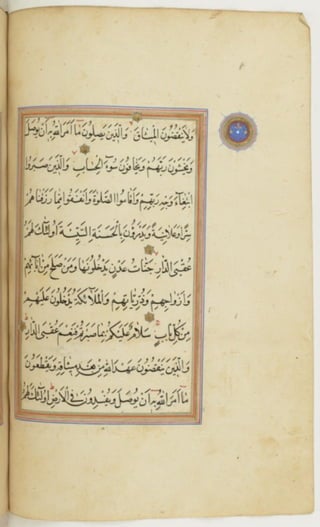 وَلَا يَنْقُضُونَ الْمِيثَاقَ وَالَّذِينَ يَصِلُونَ مَا أَمَرَ اللَّهُ بِهِ أَنْ يُوصَلَ
وَيَخْشَوْنَ رَبَّهُمْ وَيَخَافُونَ سُوءَ الْحِسَابِ وَالَّذِينَ صَبَرُوا
ابْتِغَاءَ وَجْهِ رَبِّهِمْ وَأَقَامُوا الصَّلَوةَ وَأَنْفَقُوا مِمَّا رَزَقْنَاهُمْ
سِرًّا وَعَلَانِيَةً وَيَدْرَؤُنَ بِالْحَسَنَةِ السَّيِّئَةَ أُولَئِكَ لَهُمْ
عُقْبَى الدَّارِ جَنَّاتُ عَدْنٍ يَدْخُلُونَهَا وَمَنْ صَلَحَ مِنْ آبَائِهِمْ
وَأَزْوَاجِهِمْ وَذُرِّيَّاتِهِمْ وَالْمَلَائِكَةُ يَدْخُلُونَ عَلَيْهِمْ
مِنْ كُلِّ بَابٍ سَلَامٌ عَلَيْكُمْ بِمَا صَبَرْتُمْ فَنِعْمَ عُقْبَى الدَّارِ
وَالَّذِينَ يَنْقُضُونَ عَهْدَ اللَّهِ مِنْ بَعْدِ مِيثَاقِهِ وَيَقْطَعُونَ
مَا أَمَرَ اللَّهُ بِهِ أَنْ يُوصَلَ وَيُفْسِدُونَ فِي الْأَرْضِ أُولَئِكَ لَهُمُ